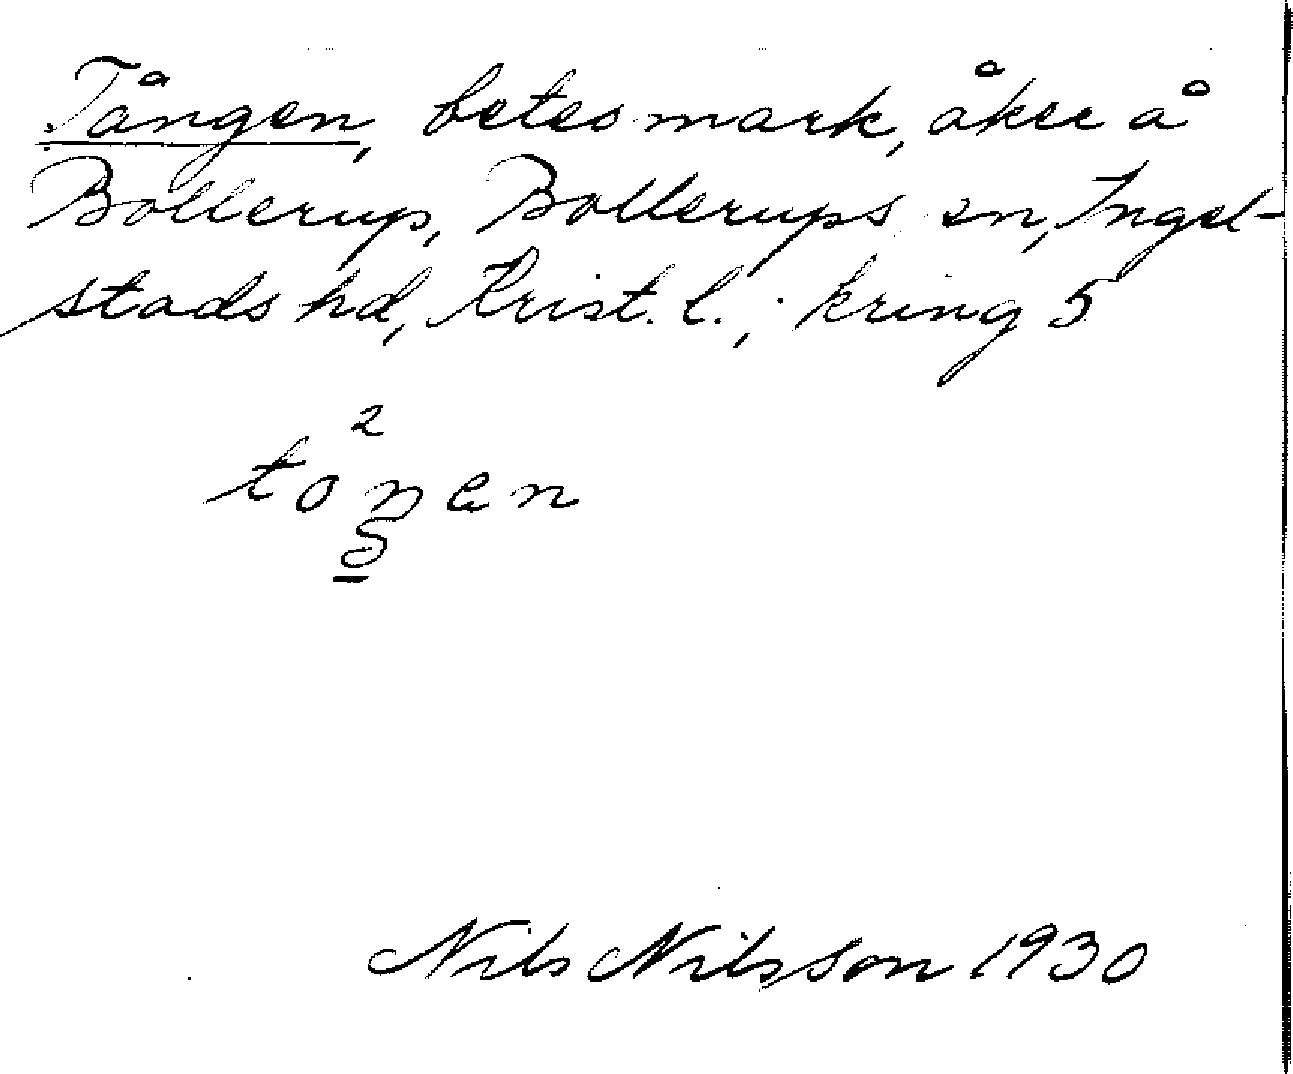 Tången, betesmark, åker å
Bollerup, Bollerups sn, Ingel-
stads hd, Krist. l.; kring 5
2
toŋen
5
Nils Nilsson 1930